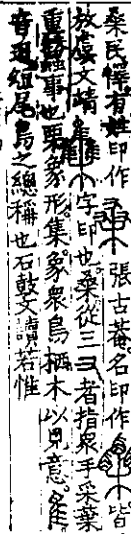 桑民懌有姓印作張古菴名印作皆
放虞文靖字印也桑從三又者指衆手采葉
重蠶事也象形集象衆鳥栖木以見意隹
音追短尾鳥之總稱也石鼓文讀若惟